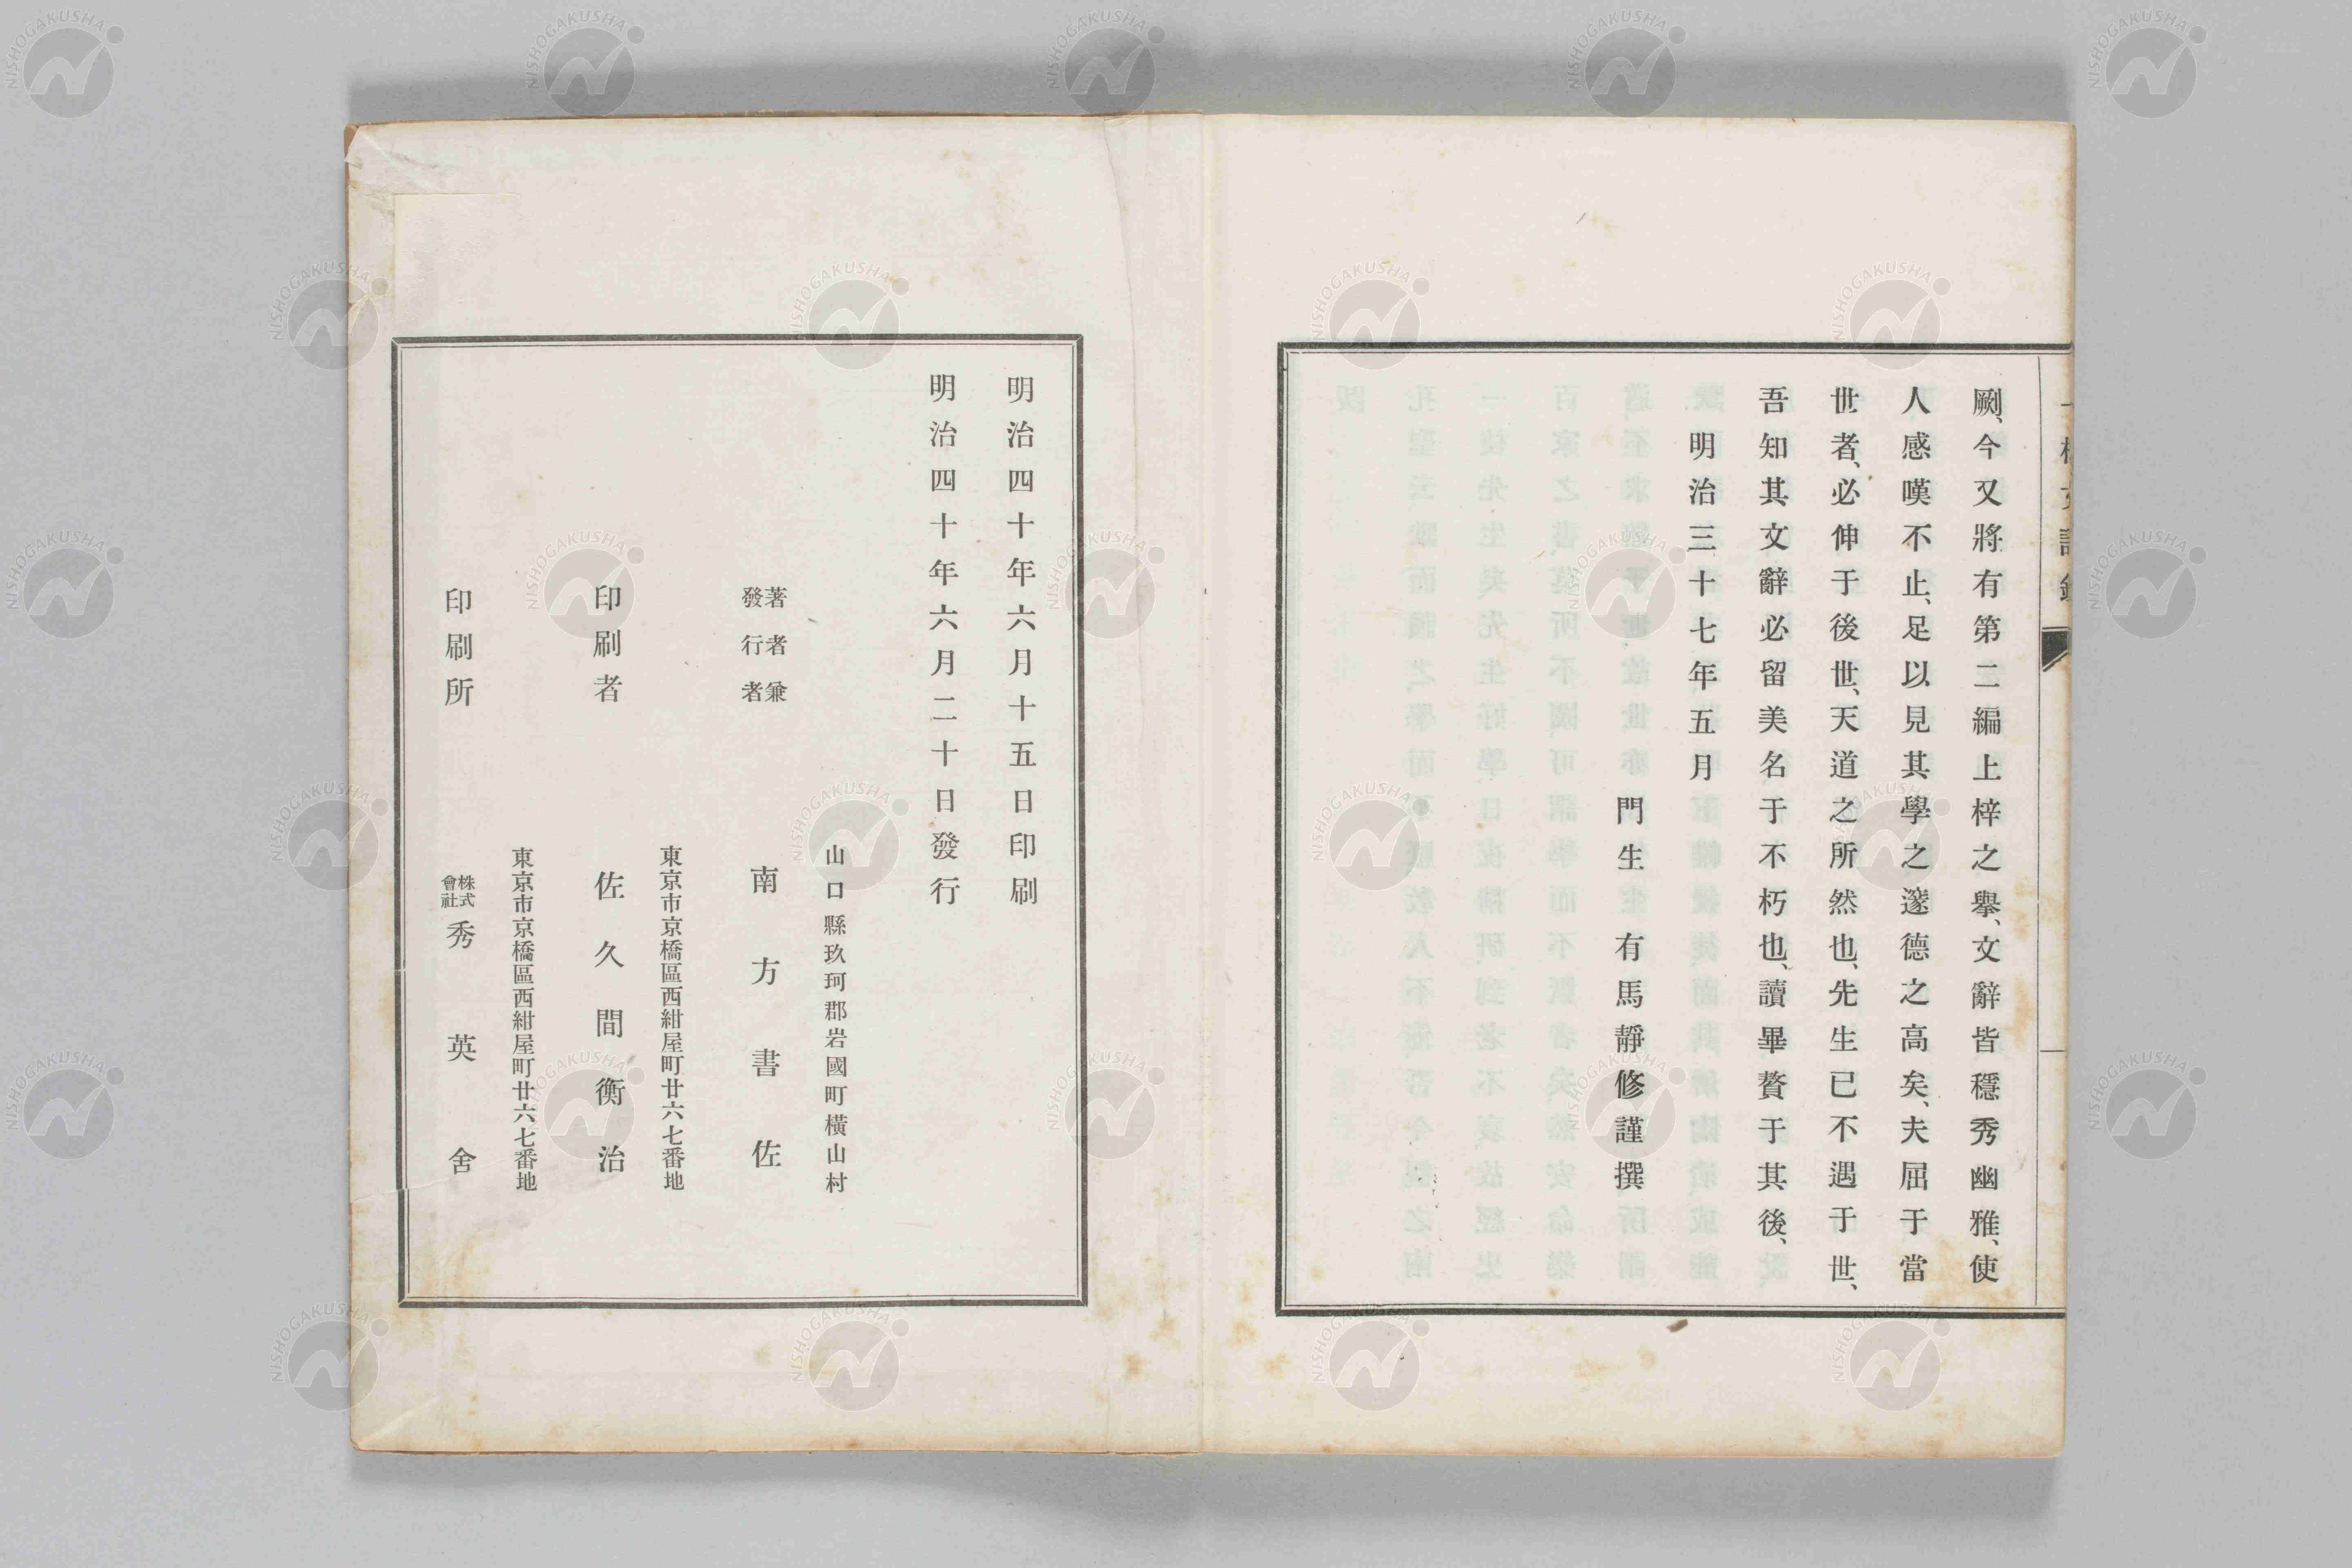 劂、今又將有第二編上梓之擧、文辭皆穩秀幽雅、使
人感嘆不止、足以見其學之邃德之高矣、夫屈于當
世者、必伸于後世、天道之所然也、先生已不遇于世、
吾知其文辭必留美名于不朽也、讀畢贅于其後、
明治三十七年五月
門生 有馬靜修謹撰
明治四十年六月十五日印刷
明治四十年六月二十日發行
山口縣玖珂郡岩國町橫山村
著者兼
發行者
南方書佐
東京市京橋區西紺屋町廿六七番地
印刷者 佐久間衡治
東京市京橋區西紺屋町廿六七番地
印刷所 株式會社 秀英舍
NISHOGAKUSHA